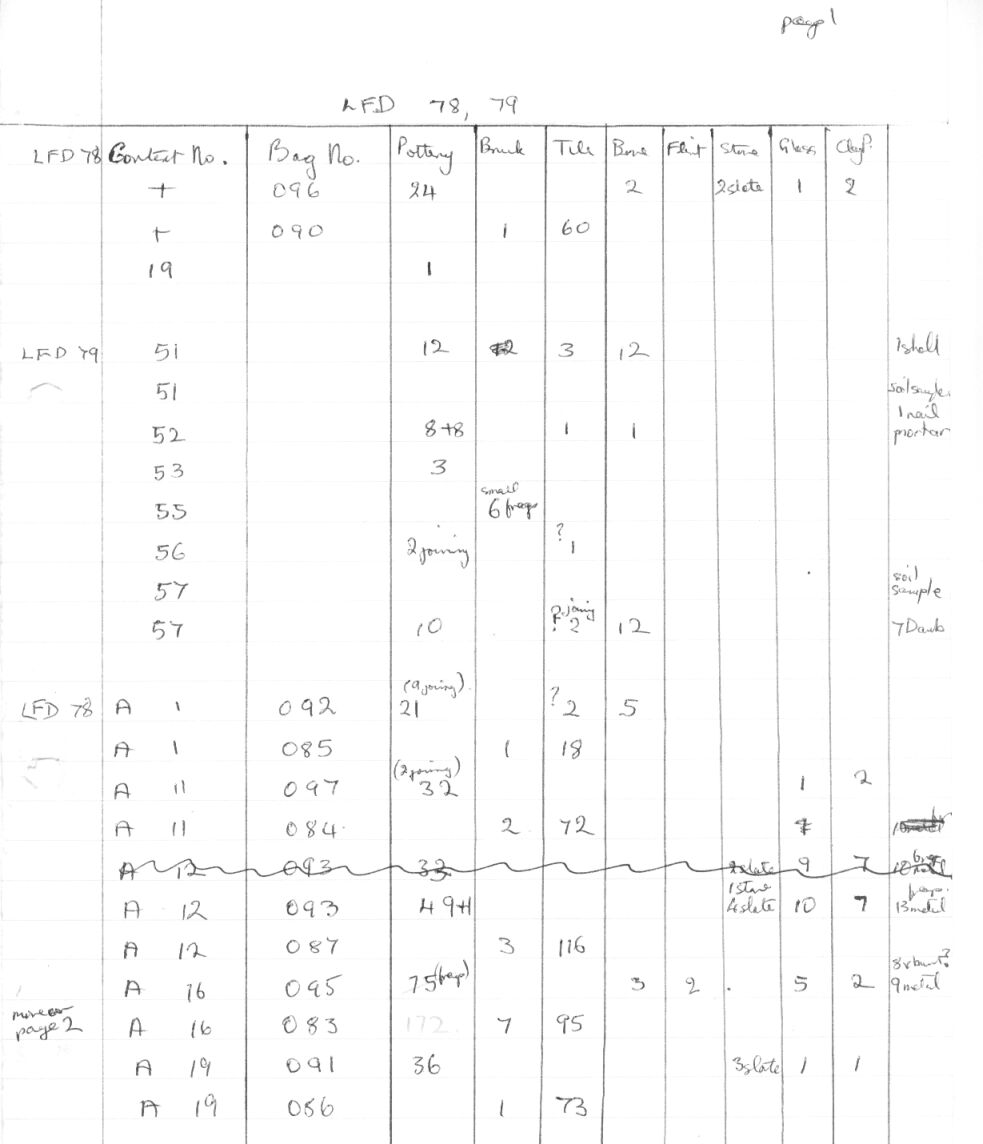 page 1
LFD 78, 79
LFD 78 Context No. Bag No. Pottery Brick Tile Bone Flint Stone Glass ClayP.
+ 096 24 2 2 slate 1 2
+ 090 1 60
19 1
LFD 79 51 12 2 3 12 1 shell
51 soil sample.
52 8+8 1 1 1 nail mortar
53 3
55 small 6 frags
56 2 joining ? 1
57 soil sample
57 10 ? joining 2 12 7 Daub
LFD 78 A 1 092 (9 joining) 21 ? 2 5
A 1 085 1 18
A 11 097 (2 joining) 32 1 2
A 11 084 2 72
A 12 093 33 slate 9 7
A 12 093 49+1 1 stone 4 slate 10 7 frags. 13 metal
A 12 087 3 116
A 16 095 75 (frags) 3 2 5 2 burnt? 9 metal
more on page 2 A 16 083 172 7 95
A 19 091 36 3 slate 1 1
A 19 086 1 73